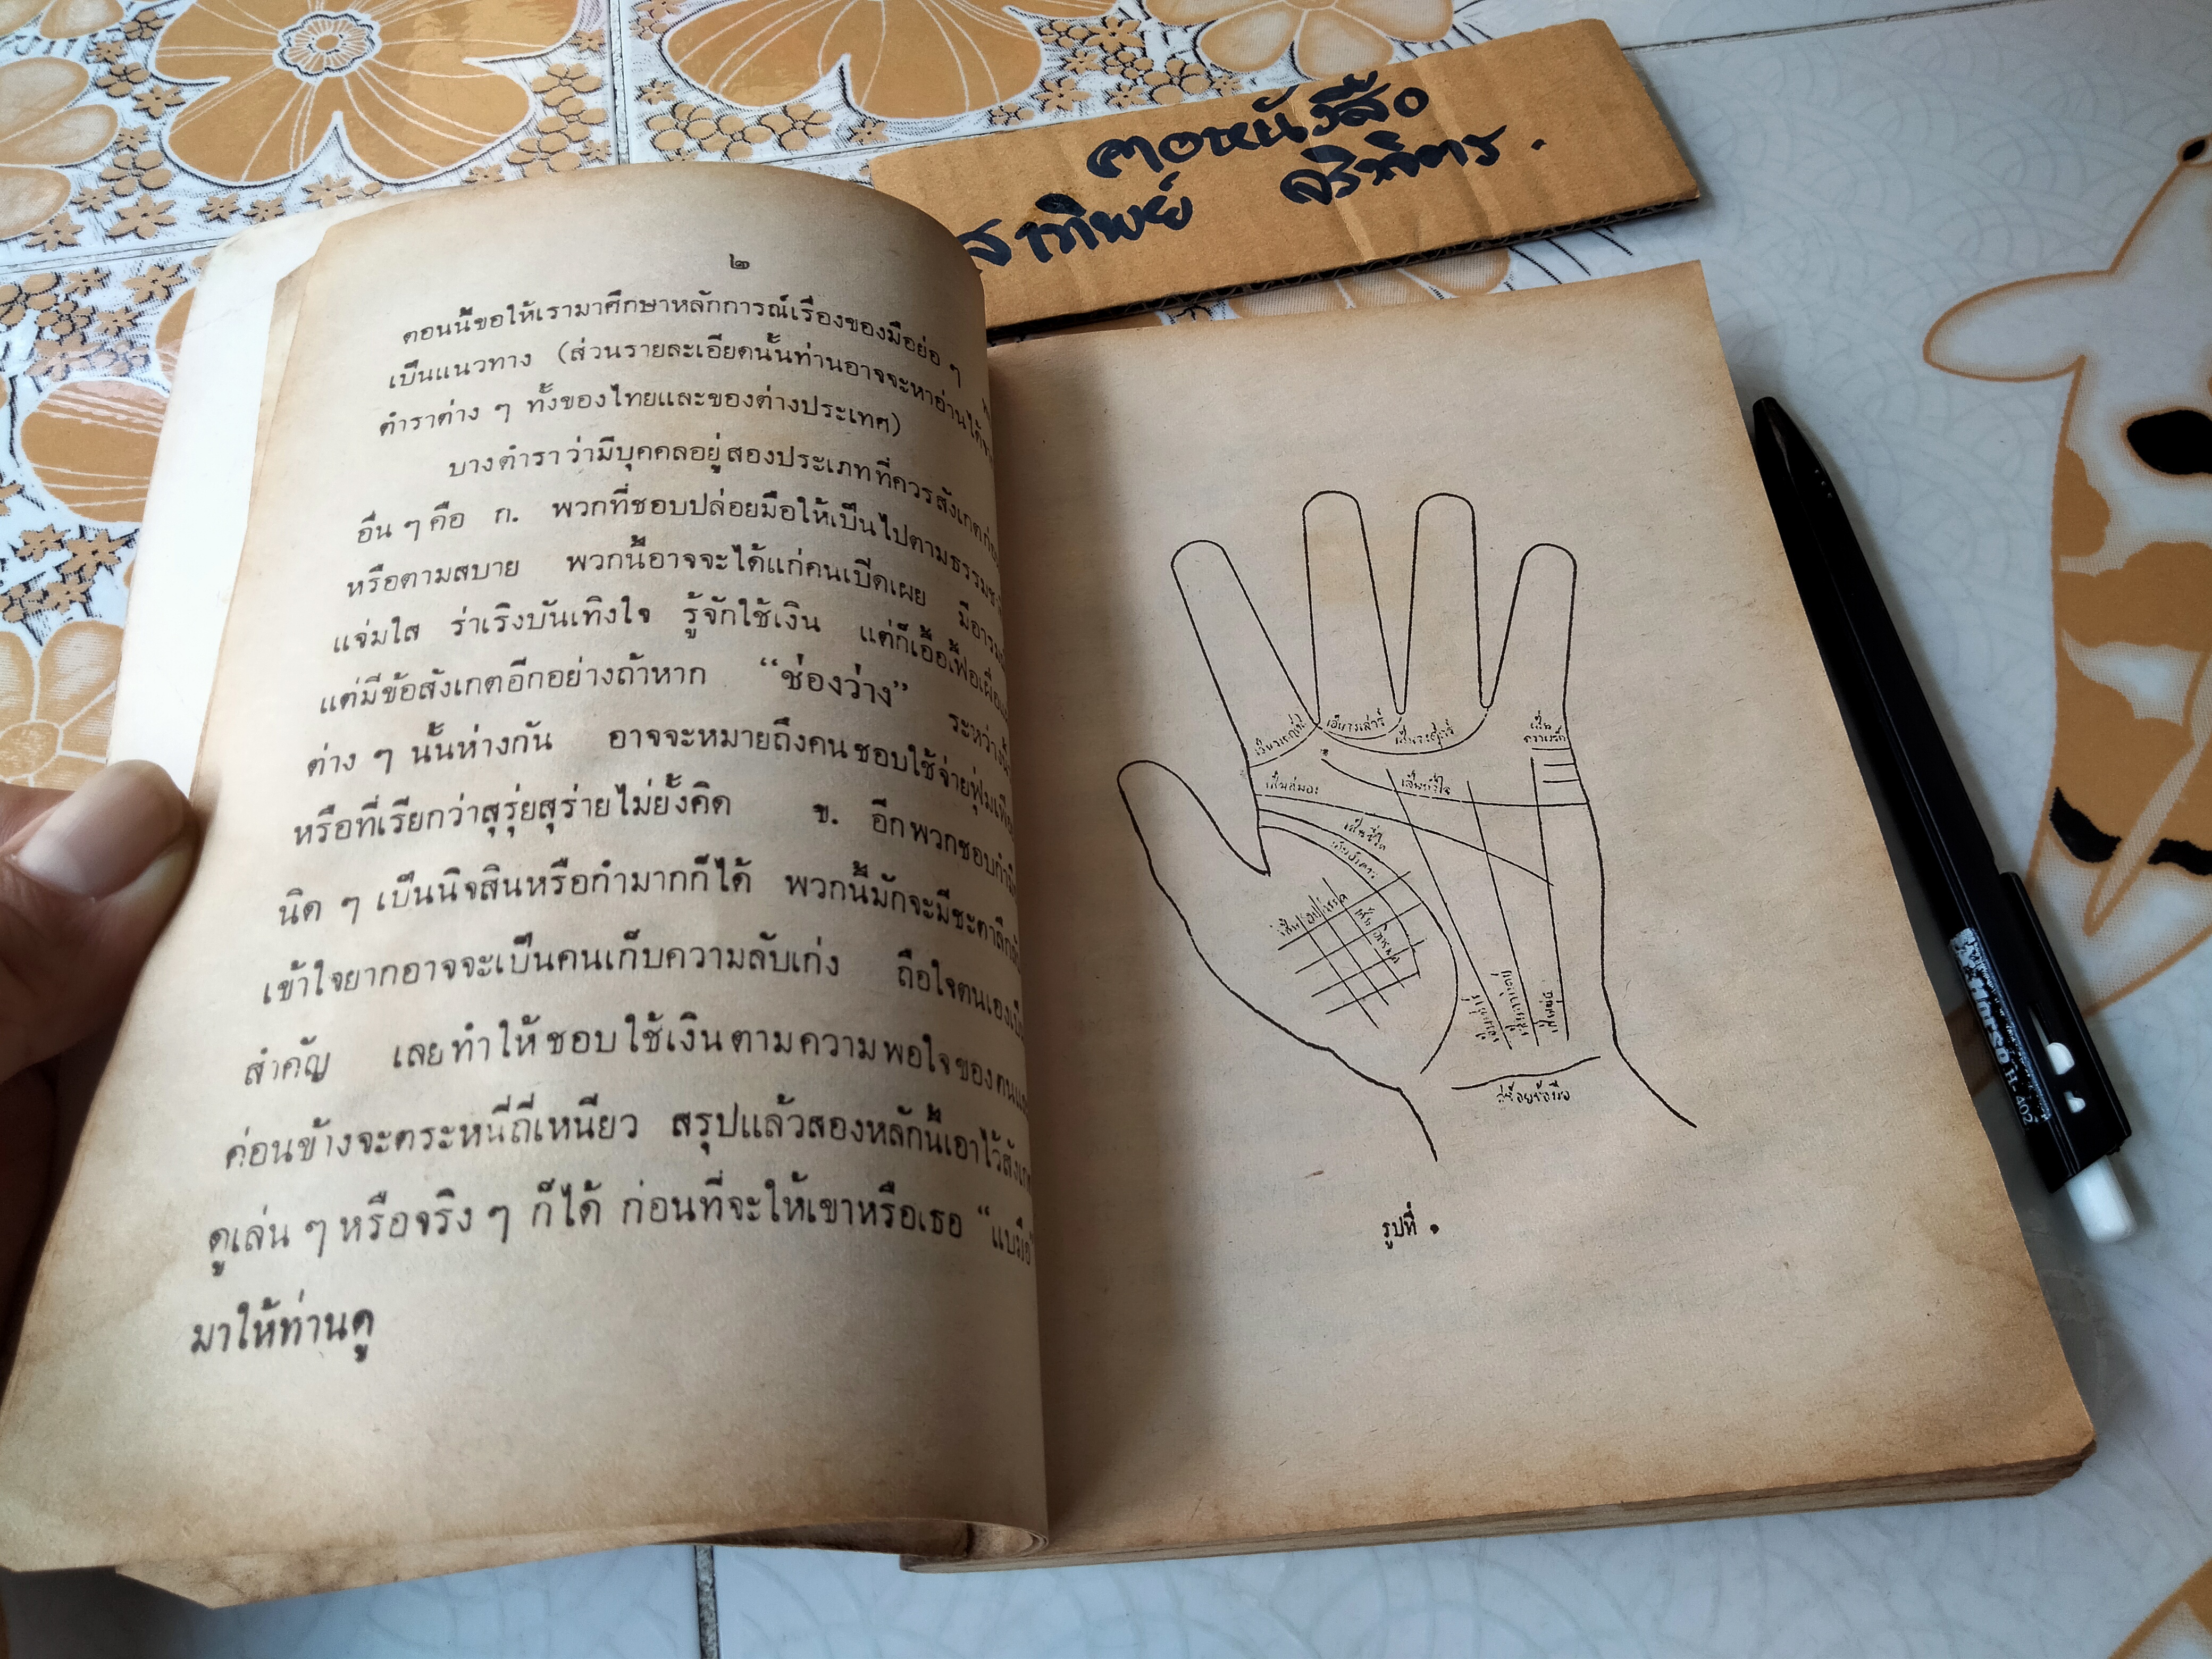 คอหนังสือ
สาทิพย์
๒
ตอนนี้ขอให้เรามาศึกษาหลักการณ์เรื่องของมือย่อ ๆ
เป็นแนวทาง (ส่วนรายละเอียดนั้นท่านอาจจะหาอ่านได้
ตำราต่าง ๆ ทั้งของไทยและของต่างประเทศ)
บางตำราว่ามีบุคคลอยู่สองประเภทที่ควรสังเกตก่อน
อื่น ๆ คือ ก. พวกที่ชอบปล่อยมือให้เป็นไปตามธรรมช
หรือตามสบาย พวกนี้อาจจะได้แก่คนเปิดเผย มีอารมณ์
แจ่มใส ร่าเริงบันเทิงใจ รู้จักใช้เงิน แต่ก็เอื้อเฟื้อเผื่อแ
แต่มีข้อสังเกตอีกอย่างถ้าหาก “ช่องว่าง” ระหว่างนิ้
ต่าง ๆ นั้นห่างกัน อาจจะหมายถึงคนชอบใช้จ่ายฟุ่มเฟือ
หรือที่เรียกว่าสุรุ่ยสุร่ายไม่ยั้งคิด ข. อีกพวกชอบกำมือ
นิด ๆ เป็นนิจสินหรือกำมากก็ได้ พวกนี้มักจะมีชะตาลึกลับ
เข้าใจยากอาจจะเป็นคนเก็บความลับเก่ง ถือใจตนเองเป็น
สำคัญ เลยทำให้ชอบใช้เงินตามความพอใจของตนแ
ค่อนข้างจะตระหนี่ถี่เหนียว สรุปแล้วสองหลักนี้เอาไว้สังเก
ดูเล่น ๆ หรือจริง ๆ ก็ได้ ก่อนที่จะให้เขาหรือเธอ “แบมือ”
มาให้ท่านดู
เส้นวงเสาร์
เส้น
ความรัก
เส้นสมอง
เส้นหัวใจ
เส้นชีวิต
เส้นอังคาร
เส้นอุปสรรค
สร้อยข้อมือ
รูปที่ ๑
Horse H-402